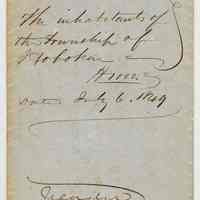 The inhabitants of
the township of
Hoboken
date July 6. 1849